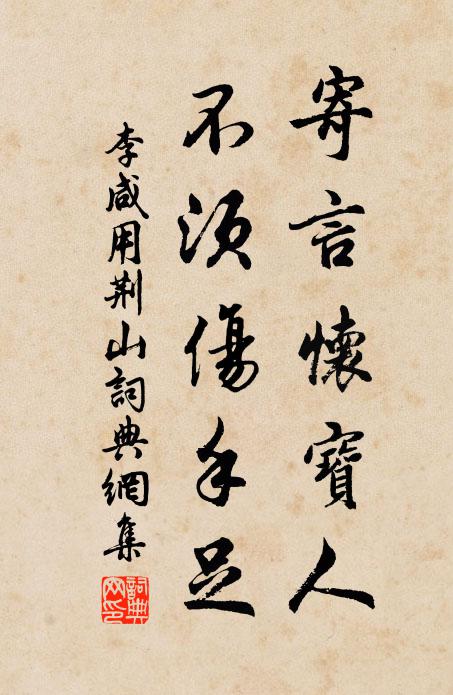 寄言懷寶人
不須傷手足
李咸用荆山詞典網集
詞典网印